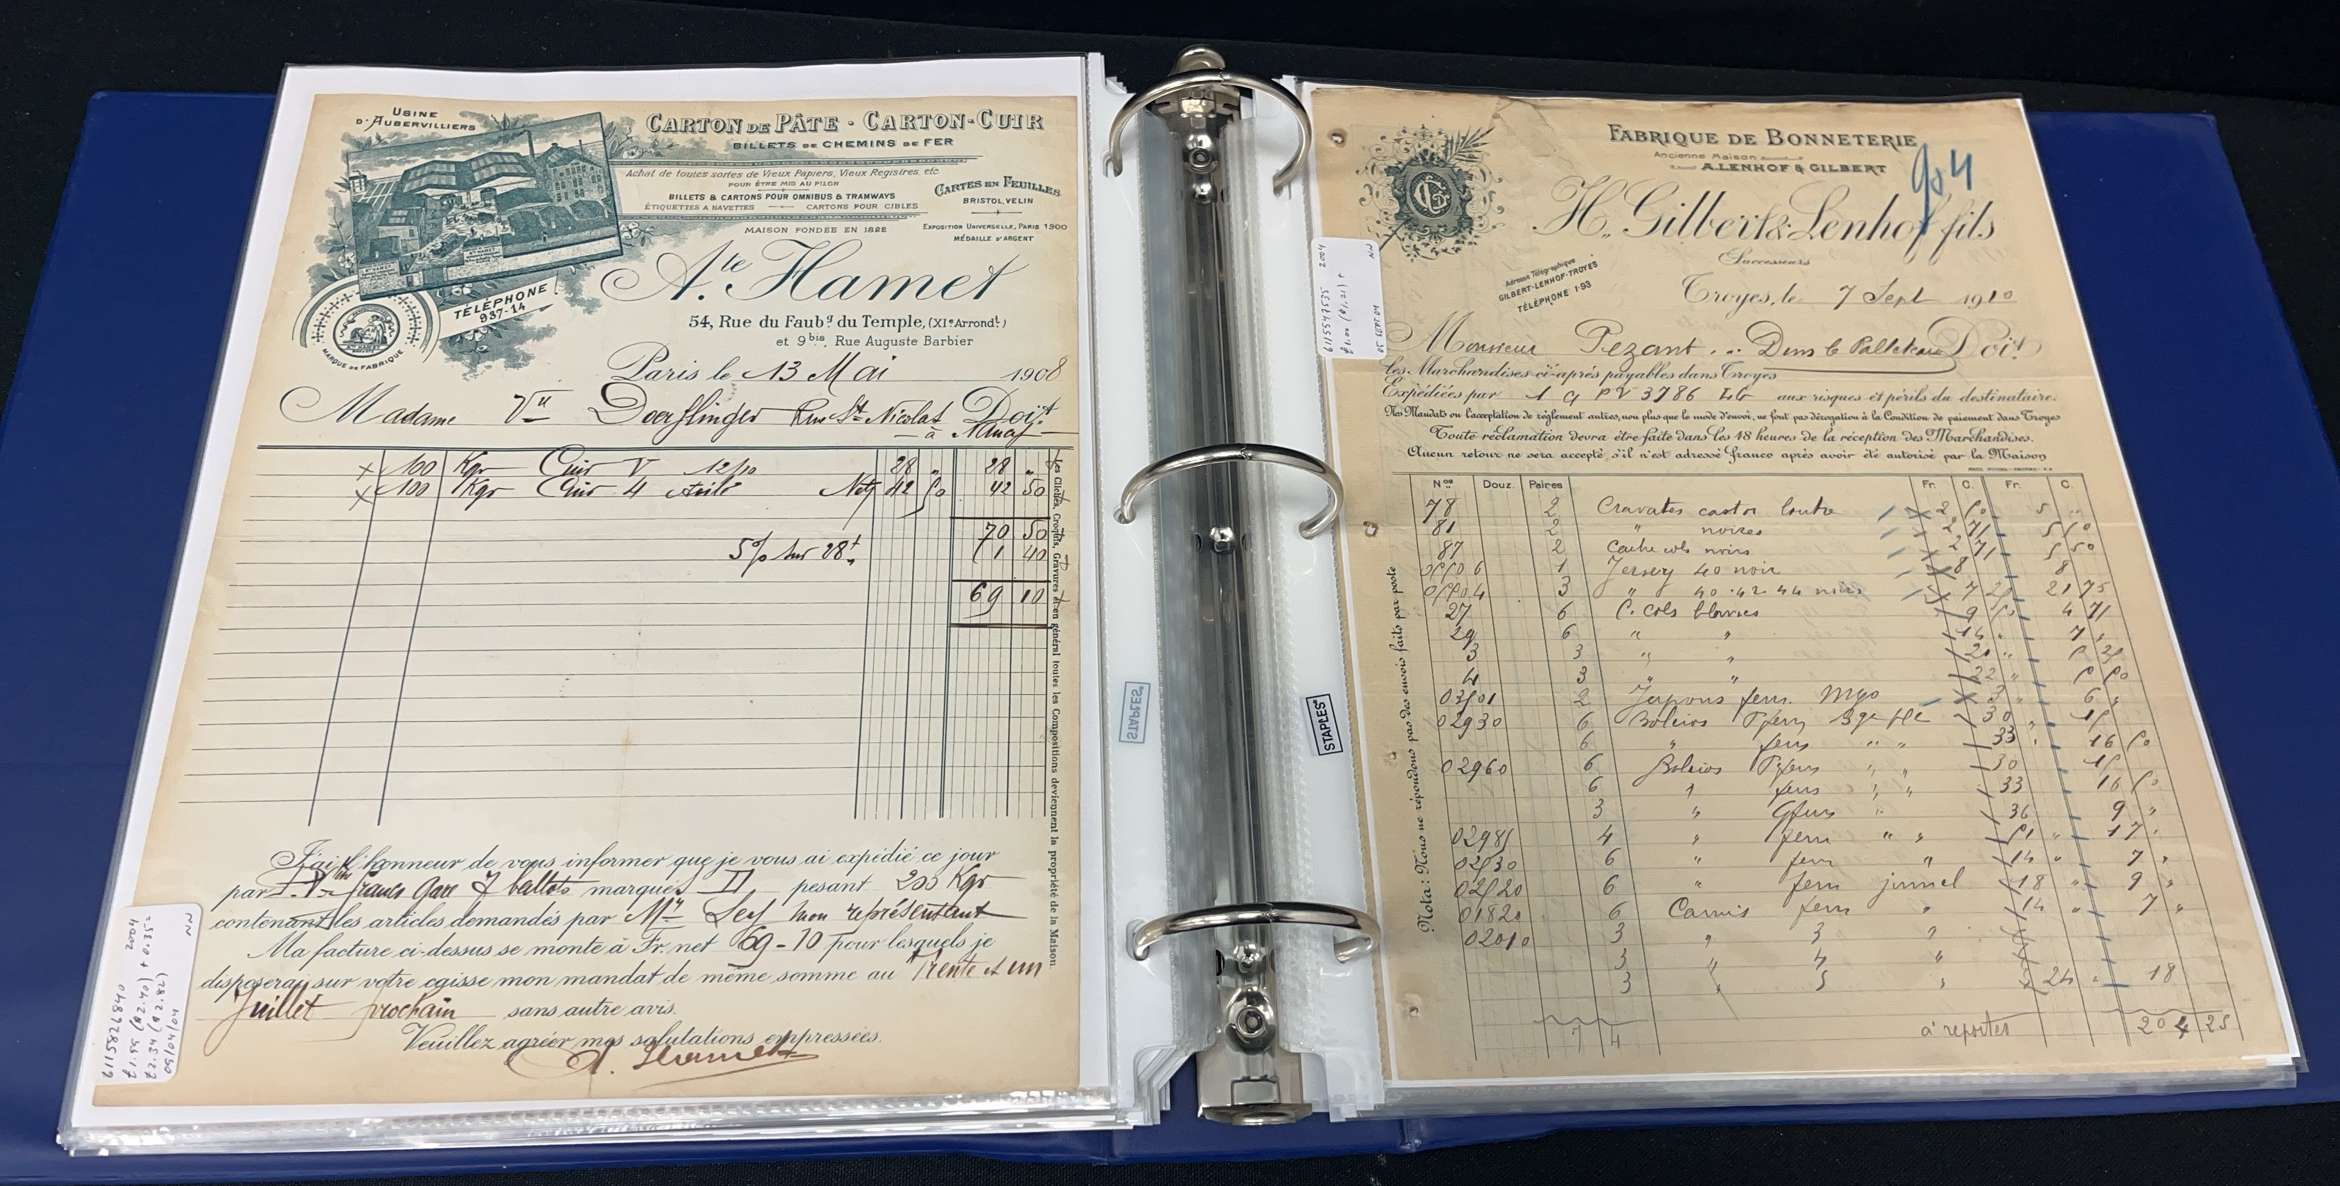 USINE
D'AUBERVILLIERS
CARTON DE PÂTE - CARTON-CUIR
BILLETS DE CHEMINS DE FER
Achat de toutes sortes de Vieux Papiers, Vieux Registres, etc
POUR ÊTRE MIS AU PILON
BILLETS & CARTONS POUR OMNIBUS & TRAMWAYS
ÉTIQUETTES A NAVETTES — CARTONS POUR CIBLES
CARTES EN FEUILLES
BRISTOL, VELIN
MAISON FONDÉE EN 1828
EXPOSITION UNIVERSELLE, PARIS 1900
MÉDAILLE D'ARGENT
A.te Hamet
TÉLÉPHONE
937-14
MARQUE DE FABRIQUE
54, Rue du Faubg du Temple, (XIe Arrondt)
et 9bis, Rue Auguste Barbier
Paris le 13 Mai 1908
Madame Vve Doerflinger Rue St Nicolas Doit
à Nancy
100 Kgr Cuir V 12/10 28 " 28 "
100 Kgr Cuir 4 42 50 42 50
70 50
5% sur 28f 1 40
69 10
Les Clichés, Croquis, Gravures et en général toutes les Compositions deviennent la propriété de la Maison.
J'ai l'honneur de vous informer que je vous ai expédié ce jour
par franco Gare 7 ballots marqués II pesant 200 Kgr
contenant les articles demandés par Mr Ley mon représentant
Ma facture ci-dessus se monte à Fr. net 69-10 pour lesquels je
disposerai sur votre caisse mon mandat de même somme au Trente et un
Juillet prochain sans autre avis.
Veuillez agréer mes salutations empressées.
A. Hamet
6115826840 2004
£1.59 ($2.40) + 0.75=
£2.34 ($2.82)
09/04/04 NN
STAPLES
STAPLES
FABRIQUE DE BONNETERIE
Ancienne Maison
A. LENHOF & GILBERT
904
H. Gilbert & Lenhof fils
Successeurs
Adresse Télégraphique
GILBERT-LENHOF-TROYES
TÉLÉPHONE 1-93
Troyes, le 7 Sept 1910
6115547535 2004
£1.00 ($1.21) +
05 SEPT 04 NN
Monsieur Pezant Doit
les Marchandises ci-après payables dans Troyes
Expédiées par 1 C PV 3786 LG aux risques et périls du destinataire.
Nos Mandats ou l'acceptation de règlement autres, non plus que le mode d'envoi, ne font pas dérogation à la Condition de paiement dans Troyes
Toute réclamation devra être faite dans les 48 heures de la réception des Marchandises.
Aucun retour ne sera accepté, s'il n'est adressé franco après avoir été autorisé par la Maison
Nos Douz. Paires Fr. C. Fr. C.
78 2 Cravates castor loutre 2 50 5 "
81 2 " noires 2 71 5 50
87 2 Cache cols noirs 2 71 5 50
05506 1 Jersey 40 noir 8 8
05504 3 " 40.42.44 noirs 7 25 21 75
27 6 C. cols blancs 9 50 4 71
29 6 " " 14 " 7 "
3 3 " " 20 " 5 25
4 3 " " 22 " 5 50
03501 2 Jupons fem. 3 " 6 "
02930 6 Boleros Pfem 30 " 15
6 " fem " " 33 " 16 50
02960 6 Boleros Pfem " " 30 15
6 " fem " " 33 16 50
3 " Gfem " 36 9 "
02985 4 " fem " " 51 " 17 "
02530 6 " fem " 14 " 7 "
02520 6 " fem jumel 18 " 9 "
01820 6 Camis fem " 14 " 7 "
02010 3 " 3 "
3 " 4 "
3 " 5 " 24 " 18
7 4 à reporter 204 25
Nota : Nous ne répondons pas des envois faits par poste